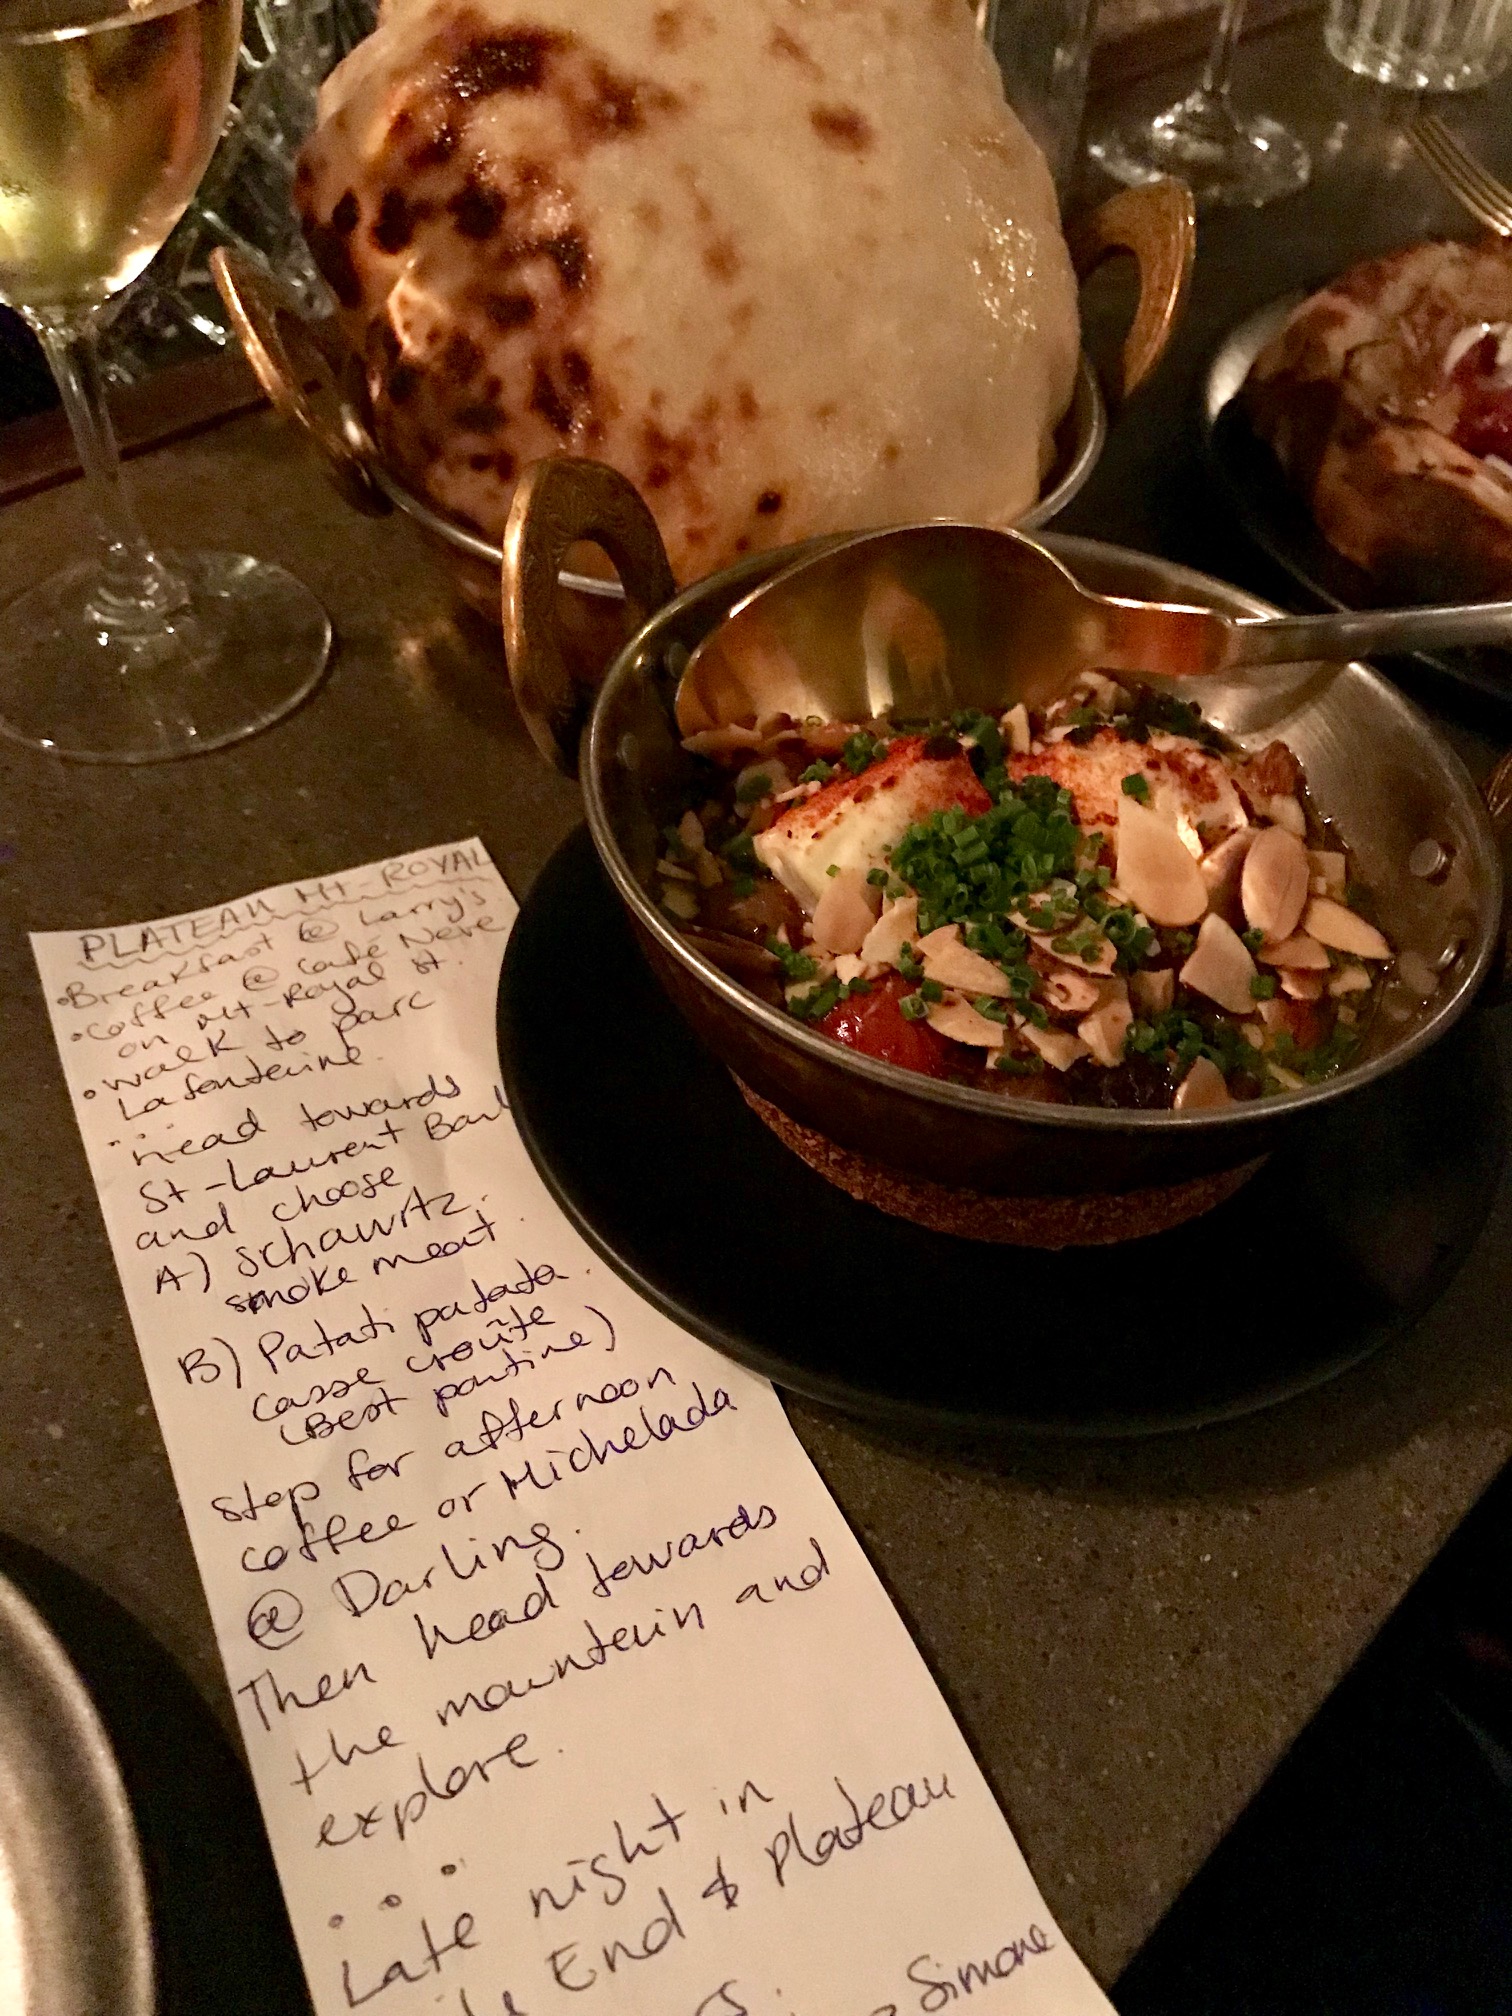 PLATEAU Mt-ROYAL
• Breakfast @ Larry's
• coffee @ Café Neve
on Mt-Royal St.
• walk to parc
Lafontaine.
...
Head towards
St-Laurent
and choose
A) Schawrtz.
smoke meat.
B) Patati patata.
casse croûte
(Best poutine)
stop for afternoon
coffee or Michelada
@ Darling.
Then head towards
the mountain and
explore.
...
Late night in
End & plateau
Simone